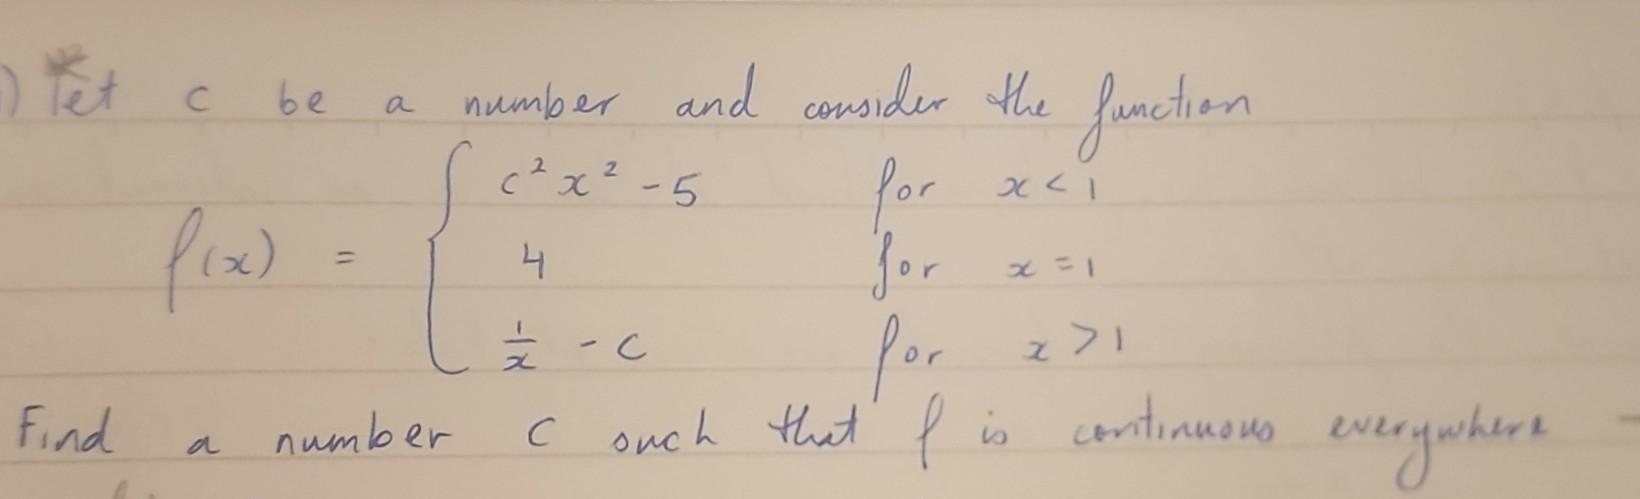 ) Let c be a number and consider the function
f(x) = { c² x² - 5 for x < 1
4 for x = 1
1/x - c for x > 1
Find a number c such that f is continuous everywhere